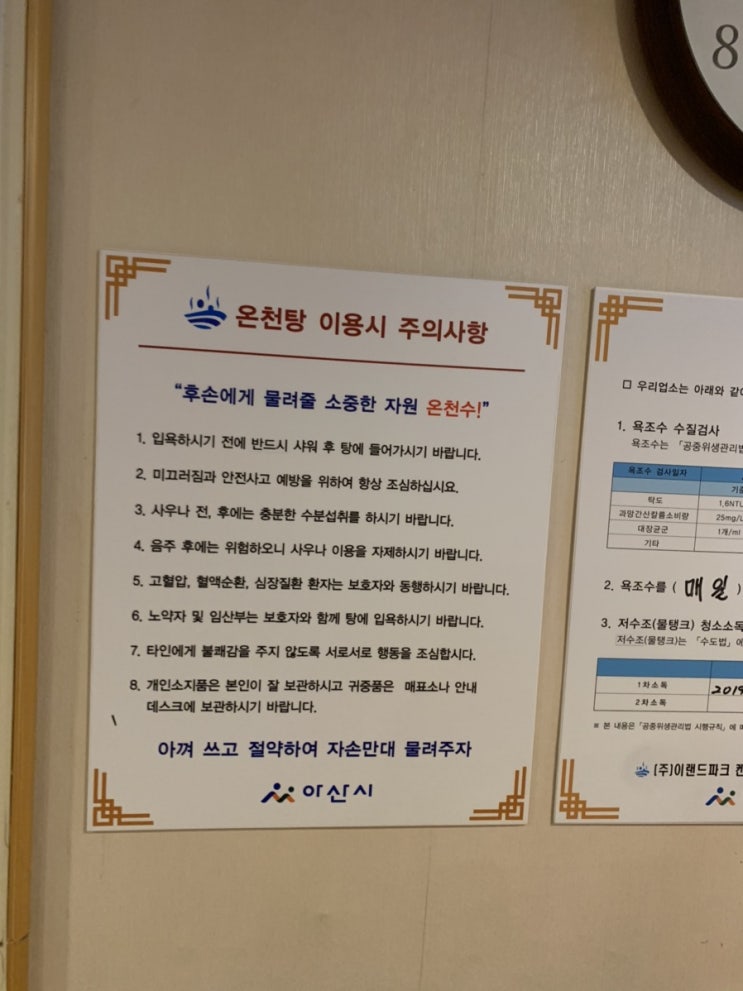 8
온천탕 이용시 주의사항
"후손에게 물려줄 소중한 자원 온천수!"
1. 입욕하시기 전에 반드시 샤워 후 탕에 들어가시기 바랍니다.
2. 미끄러짐과 안전사고 예방을 위하여 항상 조심하십시요.
3. 사우나 전, 후에는 충분한 수분섭취를 하시기 바랍니다.
4. 음주 후에는 위험하오니 사우나 이용을 자제하시기 바랍니다.
5. 고혈압, 혈액순환, 심장질환 환자는 보호자와 동행하시기 바랍니다.
6. 노약자 및 임산부는 보호자와 함께 탕에 입욕하시기 바랍니다.
7. 타인에게 불쾌감을 주지 않도록 서로서로 행동을 조심합시다.
8. 개인소지품은 본인이 잘 보관하시고 귀중품은 매표소나 안내
데스크에 보관하시기 바랍니다.
아껴 쓰고 절약하여 자손만대 물려주자
아산시
□ 우리업소는 아래와 같이
1. 욕조수 수질검사
욕조수는 「공중위생관리법
욕조수 검사일자
기준
탁도 1.6NTU
과망간산칼륨소비량 25mg/L
대장균군 1개/ml
기타
2. 욕조수를 ( 매일 )
3. 저수조(물탱크) 청소소독
저수조(물탱크)는 「수도법」에
1차소독 2019
2차소독
※ 본 내용은 「공중위생관리법 시행규칙」에
(주)이랜드파크